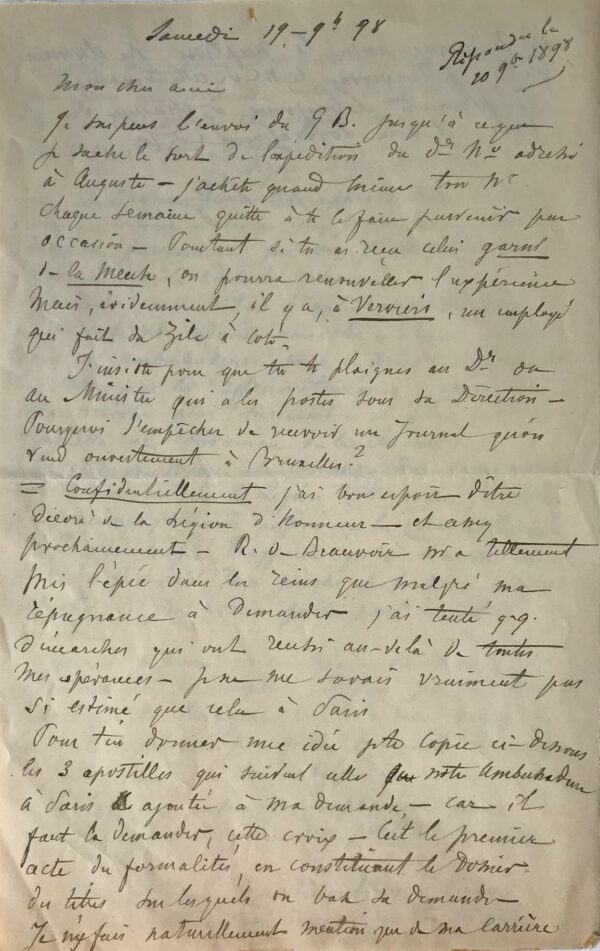 Samedi 19 - 9b 98
Répondu le
20 9bre 1898
Mon cher ami
Je suspens l'envoi du G B. jusqu'à ce que
je sache le sort de l'expédition du dr No adressé
à Auguste - j'achète quand même ton No
chaque semaine quitte à te le faire parvenir par
occasion - Pourtant si tu as reçu celui garni
de la Meuse, on pourra renouveler l'expérience
Mais, évidemment, il y a, à Verviers, un employé
qui fait du zèle à coté
J'insiste pour que tu te plaignes au Dr ou
au Ministre qui a les postes sous sa Direction -
Pourquoi t'empêcher de recevoir un Journal qu'on
vend ouvertement à Bruxelles ?
= Confidentiellement j'ai bon espoir d'être
décoré de la Légion d'Honneur - et assez
prochainement - R. de Beauvoir m'a tellement
mis l'épée dans les reins que malgré ma
répugnance à demander j'ai tenté q.q.
démarches qui ont réussi au-delà de toutes
mes espérances - Je ne me savais vraiment pas
si estimé que cela à Paris
Pour t'en donner une idée je te copie ci-dessous
les 3 apostilles qui suivent celle que notre Ambassadeur
à Paris a ajoutée à ma demande - car il
faut la demander, cette croix - C'est le premier
acte de formalités, en constituant le Dossier
des titres sur lesquels on base sa demande
Je n'y fais naturellement mention que de ma carrière